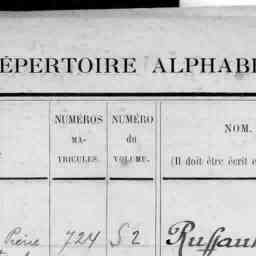 ÉPERTOIRE ALPHABI
NUMÉROS MA- TRICULES.
NUMÉRO du VOLUME.
NOM.
(Il doit être écrit e
Pierre 724 S 2 Ruffaul